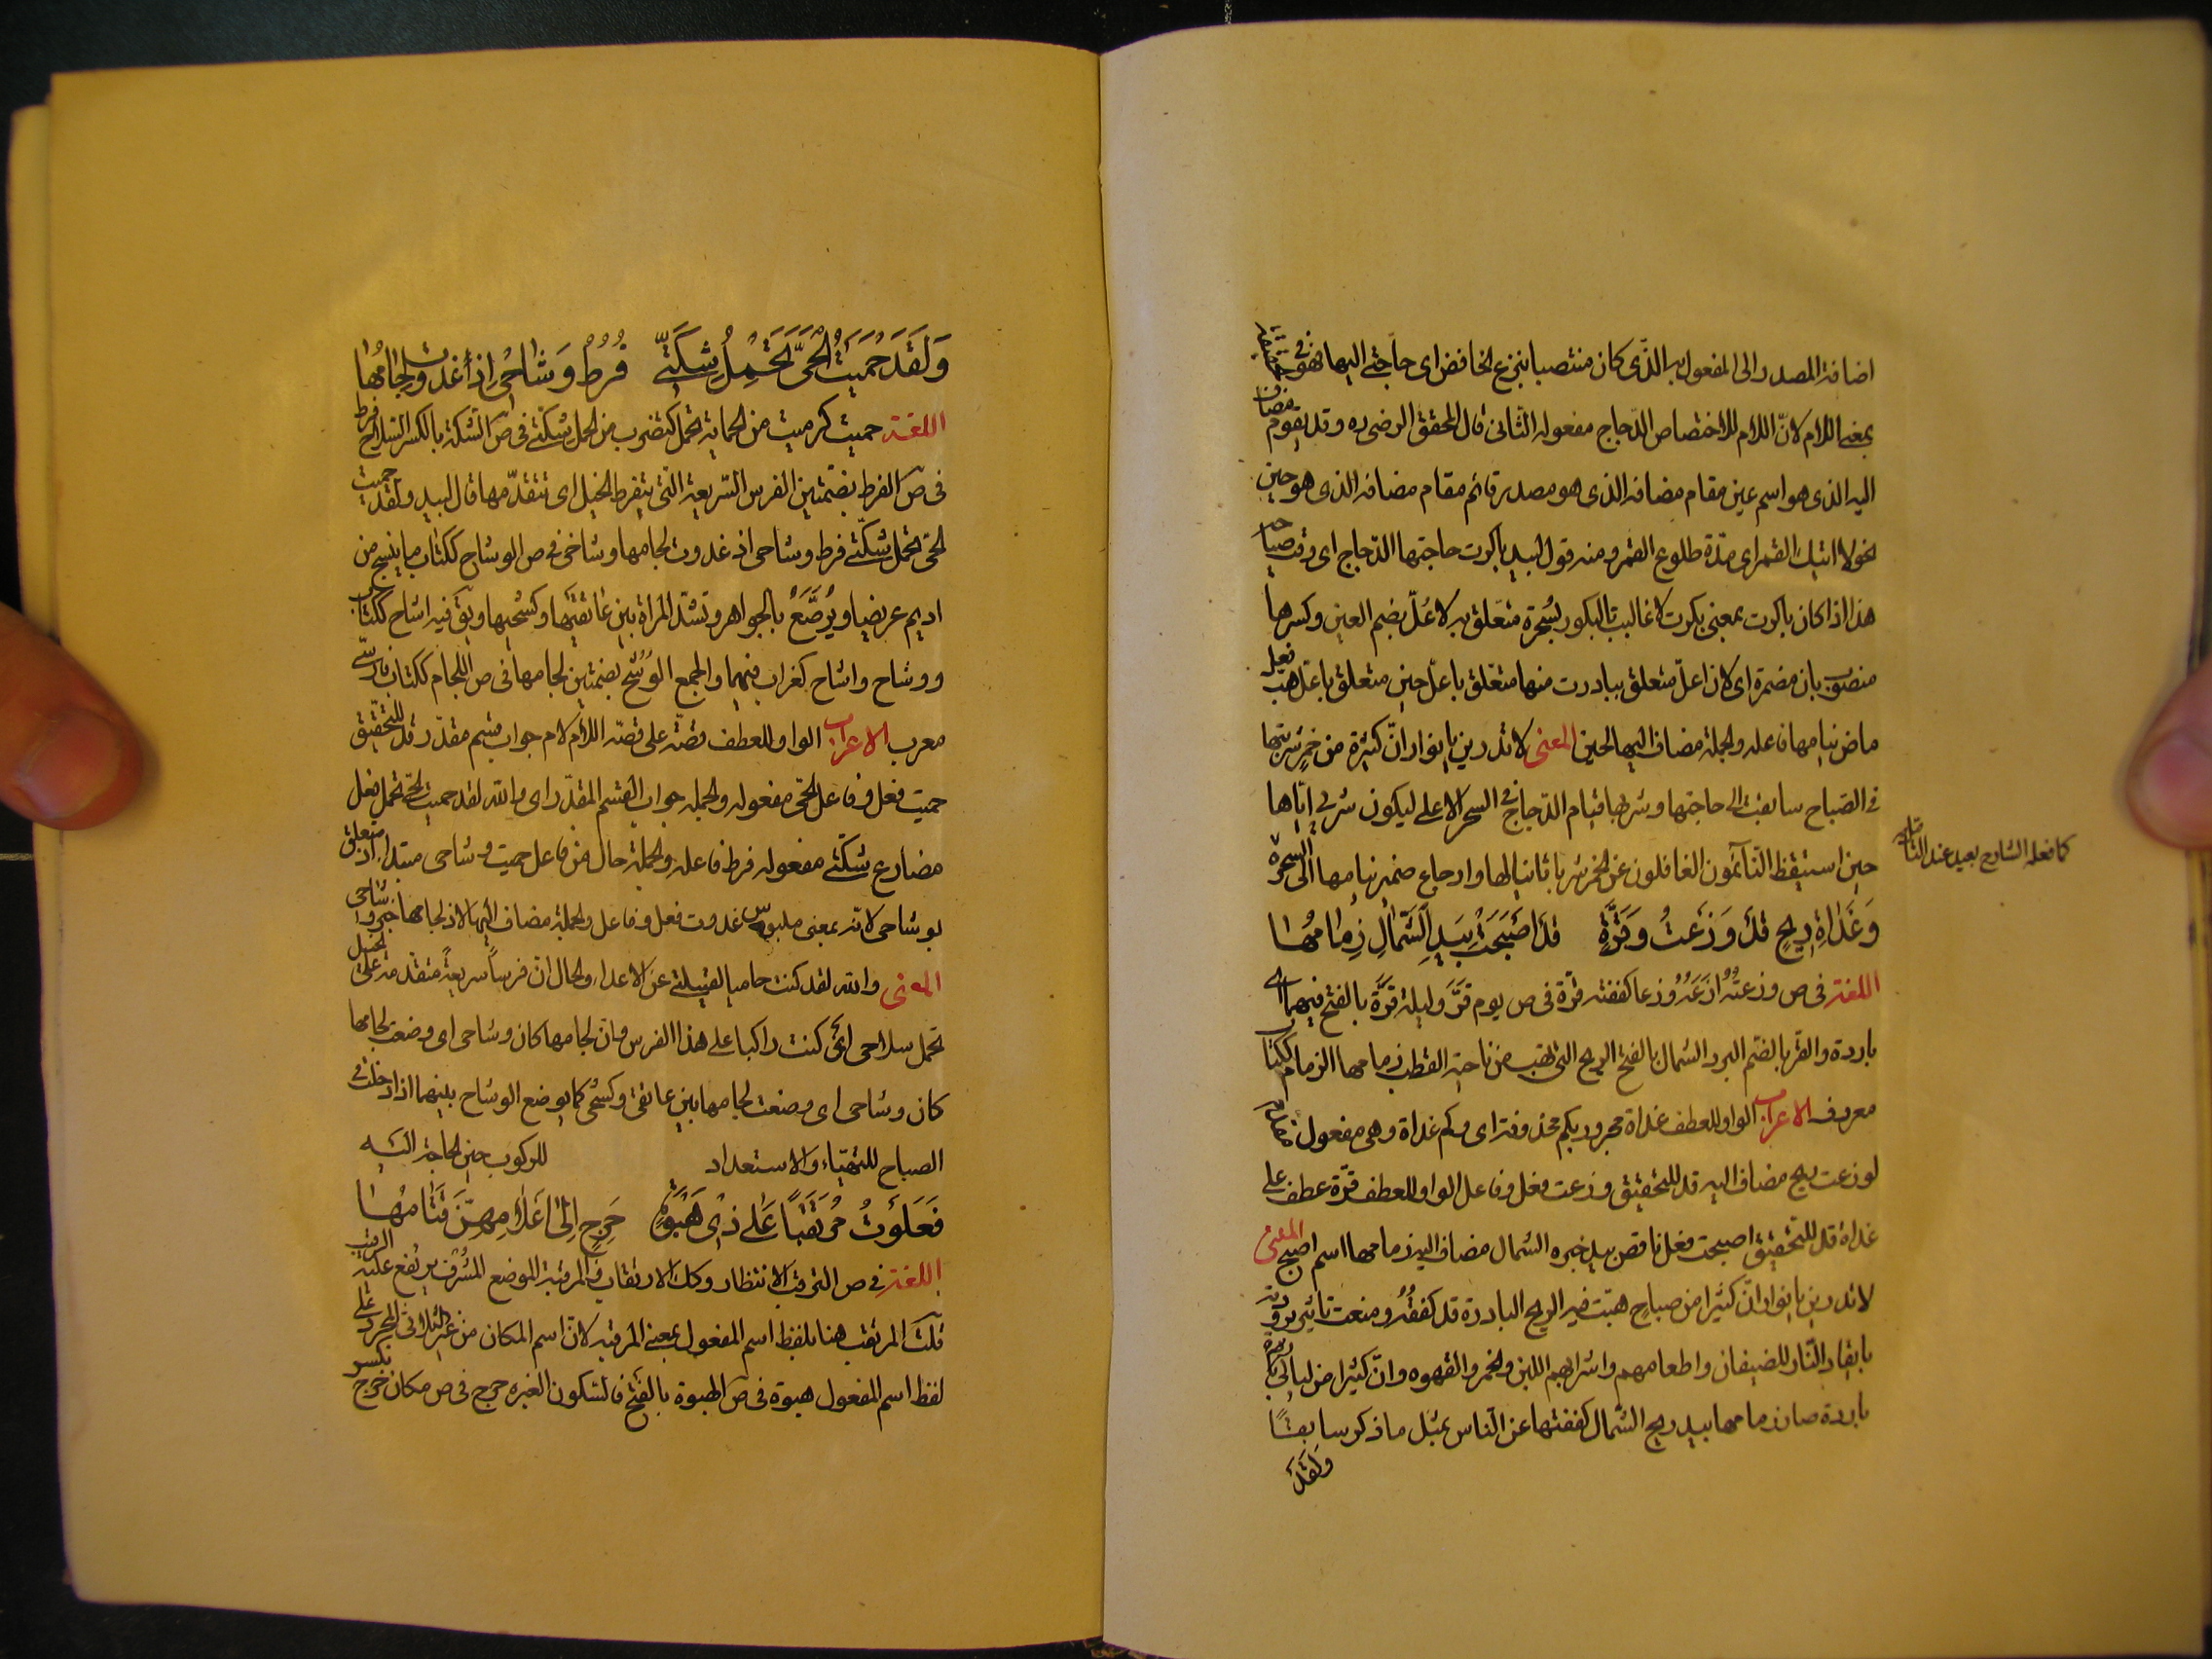 اضافة المصدر الى المفعول به الذى كان منتصبا بنزع الخافض اى حاجتى اليها فهو فى الحقيقة
بمعنى اللام لانّ اللام للاختصاص الدّجاج مفعوله الثّانى قال المحقق الرضى ره وقد يقوم مضاف
اليه الذى هو اسم عين مقام مضافه الذى هو مصدر قائم مقام مضافه الذى هو حين
نحو لا اتيك القمر اى مدّة طلوع القمر ومنه قول لبيد باكرت حاجتها الدّجاج اى وقت صياح
هذا اذا كان باكرت بمعنى بكرت لا غالبت بالبكور بسُحرة متعلّق به لاعُلّ بضم العين وكسرها
منصوب بان مضمرة اى لان اعلّ متعلق ببادرت منها متعلّق باعلّ حين متعلق باعلّ هبّ فعل
ماض نيامها فاعله والجملة مضاف اليها لحين المعنى لا تدرين يا نوار انّ كثيرة من خمر شربتها
فى الصّباح سابقت الى حاجتها وشربها قيام الدّجاج فى السحر الاعلى ليكون شربى ايّاها
حين استيقظ النّائمون الغافلون عن الخمر شربا ثانيا لها وارجاع ضمير نيامها الى السحرة
كما فعله الشارح بعيد عند التامل
وَغَدَاةِ رِيحٍ قَدْ وَزَعْتُ وَقَرَّةٍ قَدْ اَصْبَحَتْ بِيَدِ الشَّمَالِ زِمَامُهَا
اللغة فى ص وزعتُه ازَعُهُ وزعا كففته قرّة فى ص يوم قَرّ وليلة قَرَّة بالفتح فيهما اى
باردة والقر بالضّم البرد الشمال بالفتح الريح التى تهب من ناحية القطب زمامها الزمام ككتاب
معروف الاعراب الواو للعطف غداة مجرور بكم محذوفة اى وكم غداة وهى مفعول
لوزعت ريح مضاف اليه قد للتحقيق وزعت فعل وفاعل الواو للعطف قرّة عطف على
غداة قد للتحقيق اصبحت فعل ناقص بيد خبره الشمال مضاف اليه زمامها اسم اصبح المعنى
لا تدرين يا نوار انّ كثيرا من صباح هبّت فيه الريح الباردة قد كففتُه ومنعت تاثير برودته
بايقاد النّار للضيفان واطعامهم واشرابهم اللبن والخمر والقهوه وانّ كثيرا من ليالى
باردة صار زمامها بيد ريح الشّمال كففتها عن الناس بمثل ما ذكر سابقًا
وَلَقَدْ
وَلَقَدْ حَمَيْتُ الْحَىَّ تَحْمِلُ شِكَّتِى فُرُطٌ وَشَاحِى اِذْ غَدَوْتُ لِجَامُهَا
اللغة حميت كرميت من الحماية تحمل كتضرب من الحمل شكّتى فى ص الشكة بالكسر السّلاح فرط
فى ص الفرط بضمتين الفرس السّريعة التّى يتفرط الخيل اى تتقدّمها قال لبيد ولقد حميت
الحىّ تحمل شكّتى فرط وشاحى اذ غدوت لجامها وشاحى فى ص الوشاح ككتاب ما ينسج من
اديم عريضا ويُرَصَّعُ بالجواهر وتشدّ المراة بين عاتقيها وكشحيها ويق فيه اشاح ككتاب
ووشاح واشاح كغراب فيهما والجمع الوُشُح بضمتين لجامها فى ص اللجام ككتاب فارسّى
معرب الاعراب الواو للعطف قصّة على قصّة اللام لام جواب قسم مقدّر قد للتحقيق
حميت فعل وفاعل الحىّ مفعوله والجملة جواب القسم المقدّر اى والله لقد حميت الحىّ تحمل فعل
مضارع شكّتى مفعوله فرط فاعله والجملة حال من فاعل حميت وشاحى مبتدا اذ متعلق
بوشاحى لانّه بمعنى ملبوس غدوت فعل وفاعل والجملة مضاف اليها لاذ لجامها خبر وشاحى
المعنى والله لقد كنت حاميا لقبيلتى عن الاعداء والحال انّ فرساً سريعةً متقدمة على الخيل
تحمل سلاحى اى كنت راكبا على هذا الفرس وانّ لجامها كان وشاحى اى وضعت لجامها
كان وشاحى اى وضعت لجامها بين عاتقى وكشحى كما يوضع الوشاح بينهما اذا دخلت فى
الصباح للتهيّاء والاستعداد للركوب حين الحاجة اليه
فَعَلَوْتُ مُرْتَقَبًا عَلَى ذِى هَبْوَةٍ حَرِجٍ اِلَى اَعْلَامِهِنَّ قَتَامُهَا
اللغة فى ص الترقب الانتظار وكك الارتقاب والمرقبة الموضع المشرف يرتفع عليه الرقيب
قلت المرتقب هنا بلفظ اسم المفعول بمعنى المرقبه لانّ اسم المكان من غير الثلاثى المجرد على
لفظ اسم المفعول هبوة فى ص الهبوة بالفتح فالسّكون الغبره حرج فى ص مكان حرج بكسر